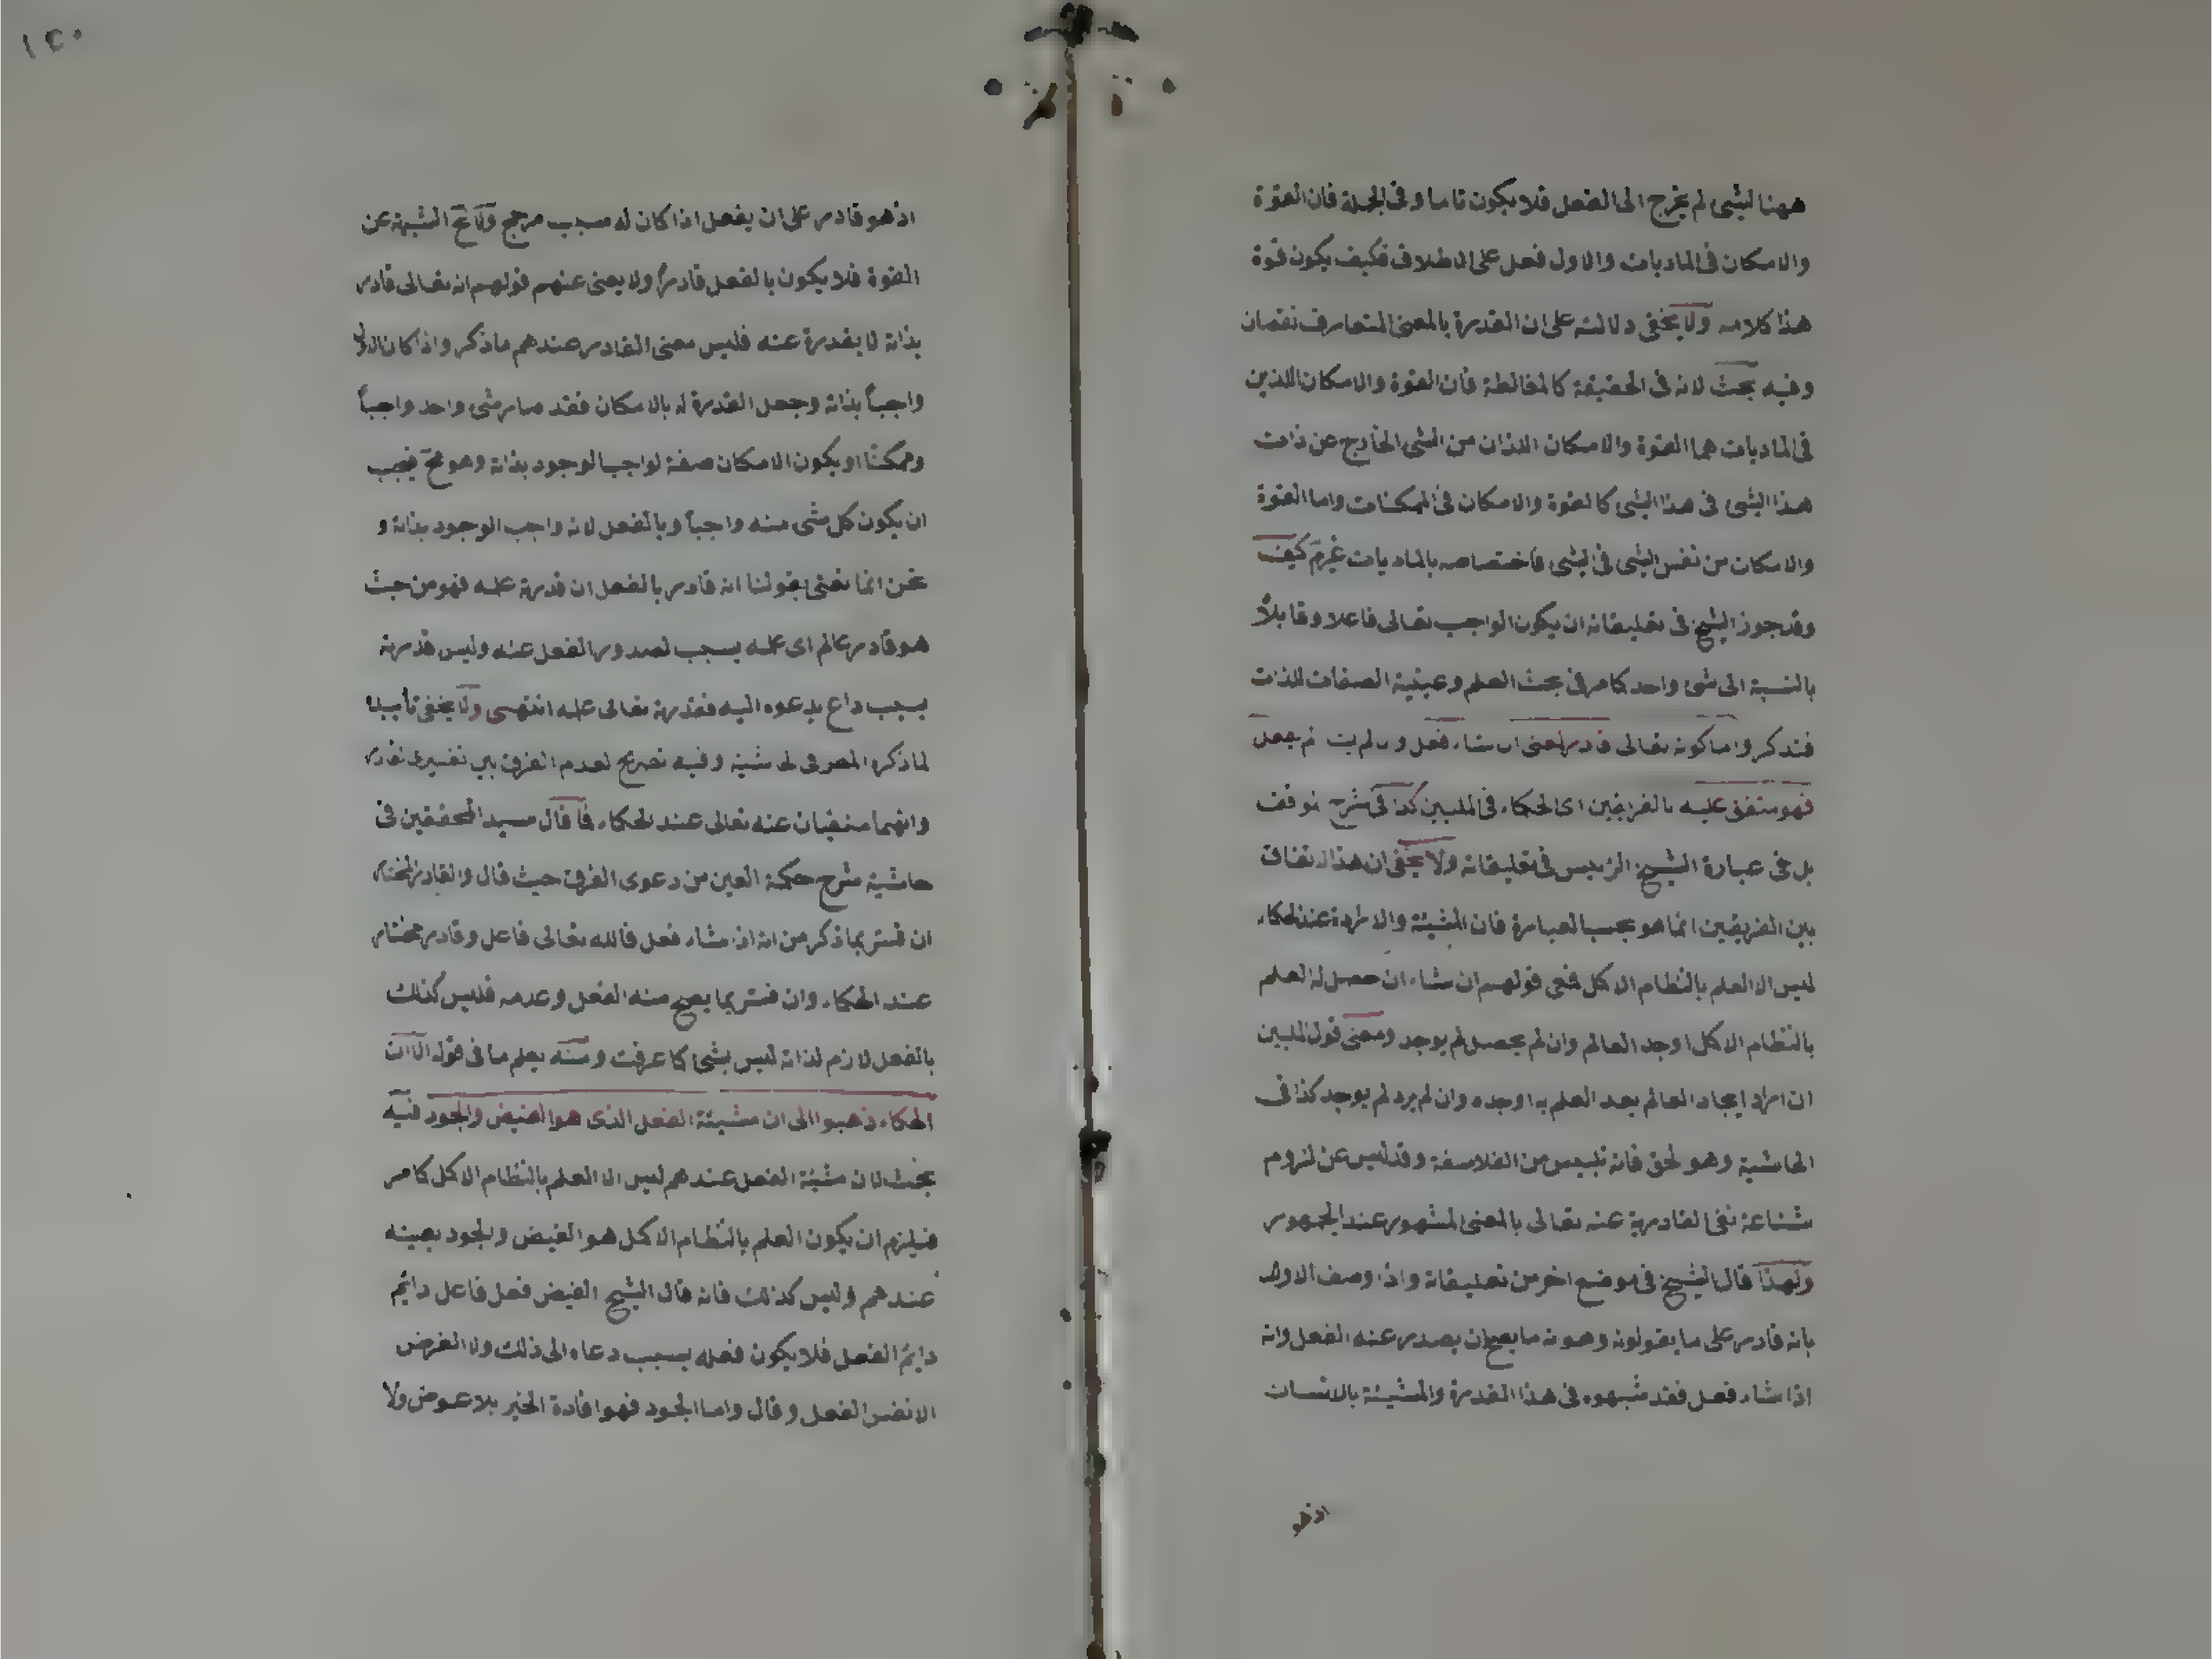 ههنا لشئ لم يخرج الى الفعل فلا يكون تاما وفى الجملة فان القوة
والامكان فى الماديات والاول فعل على الاطلاق فكيف يكون قوة
هذا كلامه ولا يخفى دلالته على ان القدرة بالمعنى المتعارف نقصان
وفيه بحث لانه فى الحقيقة كالمغالطة فان القوة والامكان اللذين
فى الماديات هما القوة والامكان اللذان من الشئ الخارج عن ذات
هذا الشئ فى هذا الشئ كالقوة والامكان فى الممكنات واما القوة
والامكان من نفس الشئ فى الشئ فاختصاصه بالماديات غير م كيف
وقد جوز الشيخ فى تعليقاته ان يكون الواجب تعالى فاعلا وقابلاً
بالنسبة الى شئ واحد كامر فى بحث العلم وعينية الصفات للذات
فتذكر واما كونه تعالى قادرا بمعنى ان شاء فعل وان لم يشاء لم يفعل
فهو متفق عليه بالفريقين اى الحكماء فى المليين كذا فى شرح الموقف
بل فى عبارة الشيخ الرئيس فى تعليقاته ولا يخفى ان هذا الاتفاق
بين الفريقين انما هو بحسب العبارة فان المشيئة والارادة عند الحكماء
ليس الا العلم بالنظام الاكل فمعنى قولهم ان شاء ان حصل له العلم
بالنظام الاكل اوجد العالم وان لم يحصل لم يوجد ومعنى قول المليين
ان اراد ايجاد العالم بعد العلم به اوجده وان لم يرد لم يوجد كذا فى
الحاشية وهو الحق فانه تلبيس من الفلاسفة وقد لبس عن لزوم
شناعة نفى القادرية عنه تعالى بالمعنى المشهور عند الجمهور
ولهذا قال الشيخ فى موضع اخر من تعليقاته واذا وصف الاول
بانه قادر على ما يقولونه وهو انه ما يصح ان يصدر عنه الفعل وانه
اذا شاء فعل فقد شبهوه فى هذا القدرة والمشيئة بالانسان
اذ هو
١٤٠
اذ هو قادر على ان يفعل اذا كان له سبب مرجح ولا تخ الشبهة عن
القوة فلا يكون بالفعل قادراً ولا يعنى عنهم قولهم انه تعالى قادر
بذاته لا بقدرة عنه فليس معنى القادر عندهم ما ذكر واذا كان الاول
واجباً بذاته وجعل القدرة له بالامكان فقد صار شئ واحد واجباً
وممكنا او يكون الامكان صفة لواجب الوجود بذاته وهو مح فيجب
ان يكون كل شئ منه واجباً وبالفعل لانه واجب الوجود بذاته و
نحن انما نعنى بقولنا انه قادر بالفعل ان قدرته علمه فهو من حيث
هو قادر عالم اى علمه بسبب لصدور الفعل عنه وليس قدرته
بسبب داع يدعوه اليه فقدرته تعالى علمه انتهى ولا يخفى تأييده
لما ذكره المص فى الحاشية وفيه تصريح لعدم الفرق بين تفسيرى القادر
وانهما منفيان عنه تعالى عند الحكماء فما قال سيد المحققين فى
حاشية شرح حكمة العين من دعوى الفرق حيث قال والقادر المختار
ان فسر بما ذكر من انه اذا شاء فعل فالله تعالى فاعل وقادر مختار
عند الحكماء وان فسر بما يصح منه الفعل وعدمه فليس كذلك
بالفعل لازم لذاته ليس بشئ كما عرفت ومنه يعلم ما فى قوله الا ان
الحكماء ذهبوا الى ان مشيئة الفعل الذى هو الفيض والجود فيه
بحث لان مشيئة الفعل عندهم ليس الا العلم بالنظام الاكل كامر
فيلزم ان يكون العلم بالنظام الاكل هو الفيض والجود بعينه
عندهم وليس كذلك فانه قال الشيخ الفيض فعل فاعل دائم
دايم الفعل فلا يكون فعله بسبب دعاه الى ذلك ولا الغرض
الا نفس الفعل وقال واما الجود فهو افادة الخير بلا عوض ولا